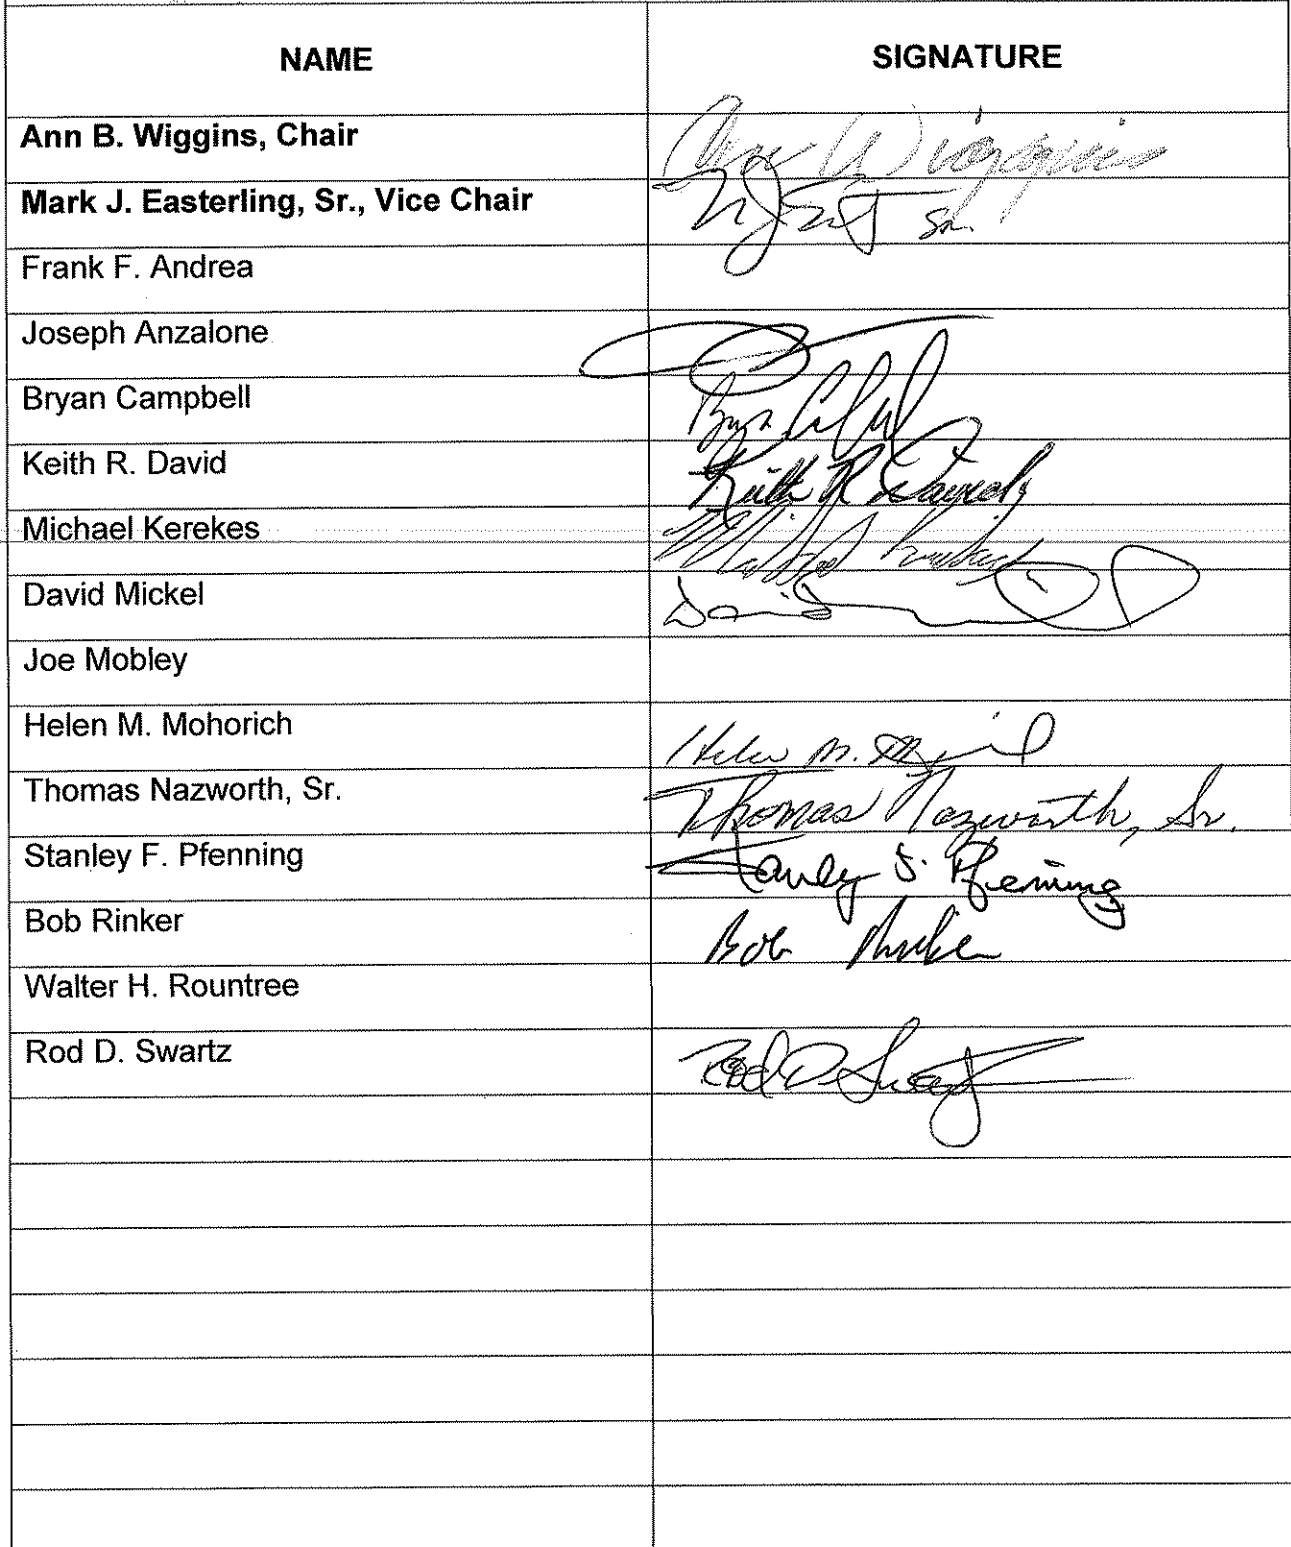 NAME SIGNATURE
Ann B. Wiggins, Chair Ann Wiggins
Mark J. Easterling, Sr., Vice Chair Sr.
Frank F. Andrea
Joseph Anzalone
Bryan Campbell
Keith R. David Keith R David
Michael Kerekes
David Mickel
Joe Mobley
Helen M. Mohorich Helen M.
Thomas Nazworth, Sr. Thomas Nazworth, Sr.
Stanley F. Pfenning Stanley F. Pfenning
Bob Rinker Bob Rinker
Walter H. Rountree
Rod D. Swartz Rod D. Swartz